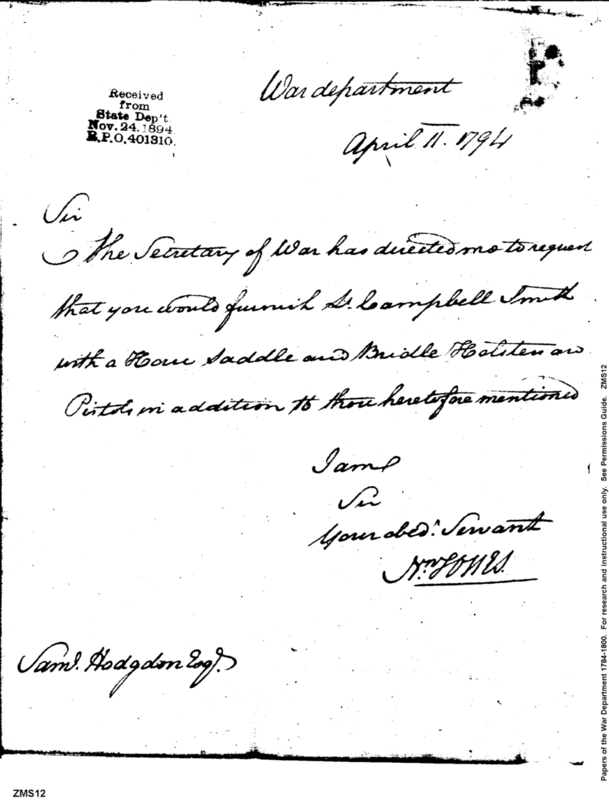 Received
from
State Dep't
Nov. 24. 1894
R.P.O. 401310.
War department
April 11. 1794
Sir
The Secretary of War has directed me to request
that you would furnish Lt. Campbell Smith
with a Horse Saddle and Bridle Holsters and
Pistols in addition to those heretofore mentioned
I am
Sir
Your obedt. Servant
Jones.
Saml. Hodgdon Esqr.
ZMS12
Papers of the War Department 1784-1800. For research and instructional use only. See Permissions Guide. ZMS12